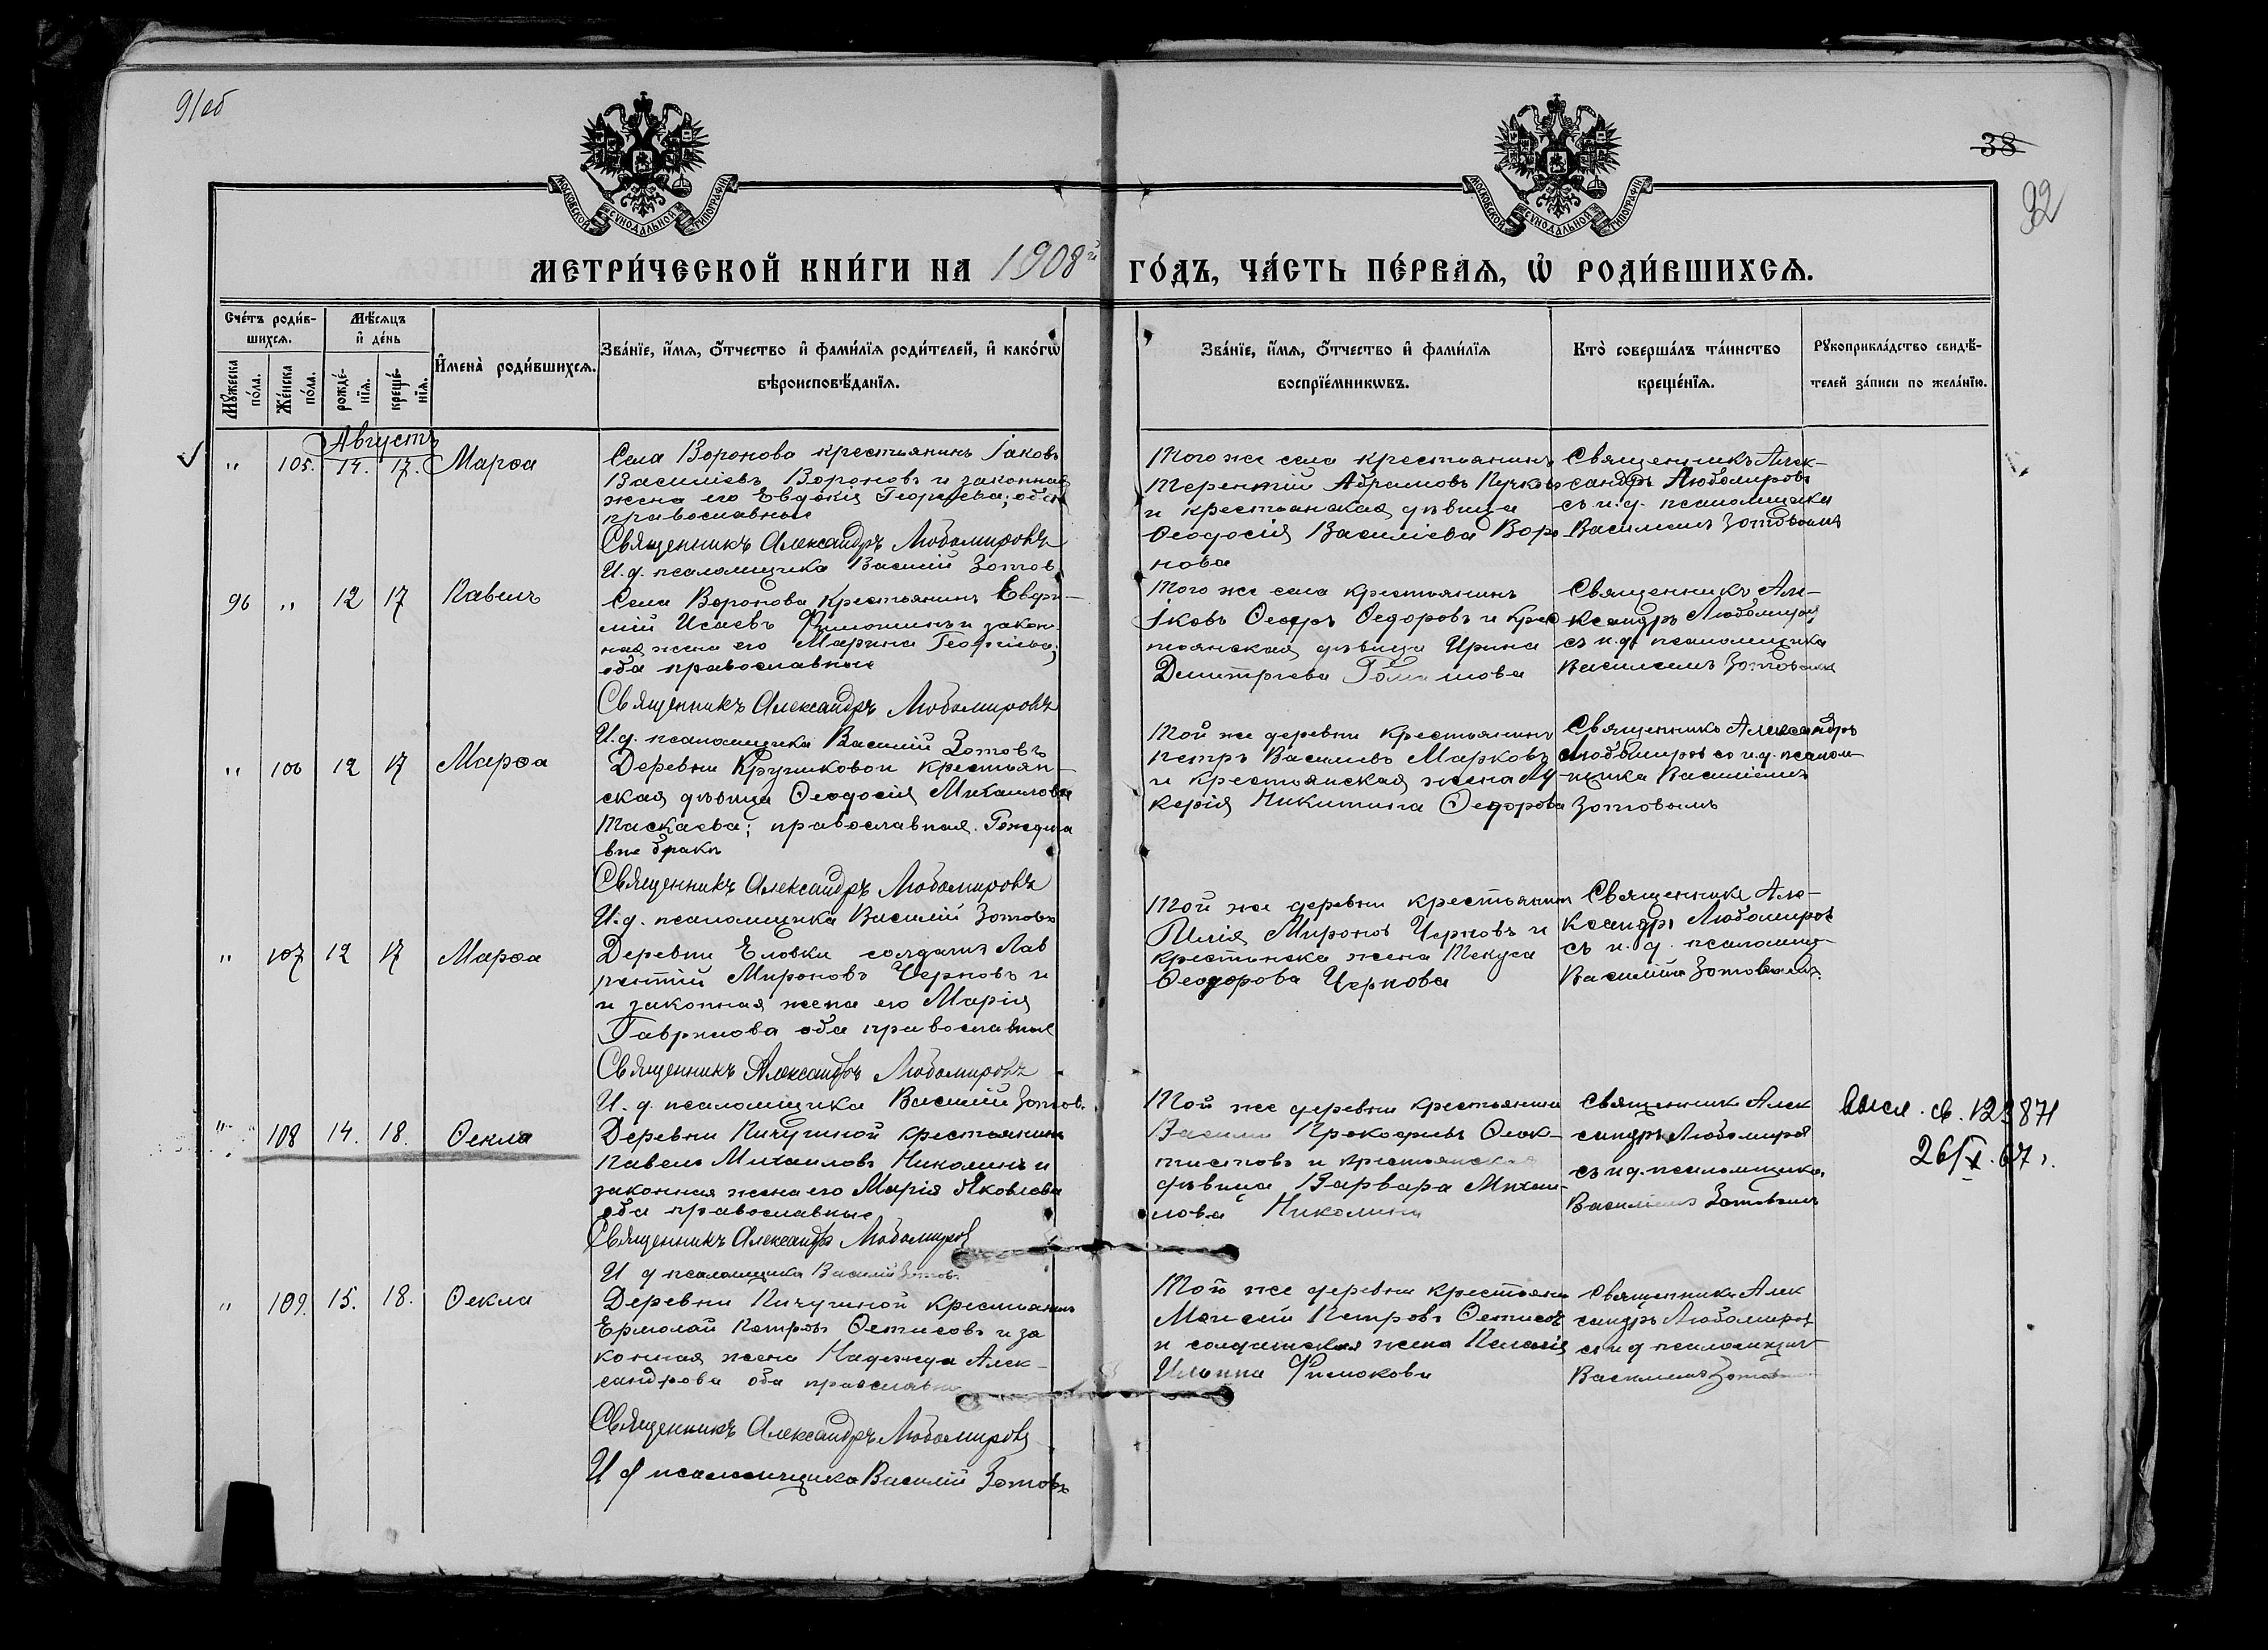 91об
38
92
МОСКОВСКОЙ СѴНОДАЛЬНОЙ ТИПОГРАФІИ
МОСКОВСКОЙ СѴНОДАЛЬНОЙ ТИПОГРАФІИ
МЕТРИ́ЧЕСКОЙ КНИ́ГИ НА 1908й ГО́ДЪ, ЧА́СТЬ ПЕ́РВАЯ, Ѡ РОДИ́ВШИХСЯ.
Сче́тъ роди́в-
шихся.
Мꙋ́жеска по́ла.
Же́нска по́ла.
Мѣ́сяцъ
и҆ де́нь
рожде́-
нїя.
креще́-
нїя.
И҆мена̀ роди́вшихся.
Зва́нїе, и҆́мя, ѻ҆́тчество и҆ фами́лїя роди́телей, и҆ како́гѡ
вѣроисповѣ́данїя.
Зва́нїе, и҆́мя, ѻ҆́тчество и҆ фами́лїя
воспрїе́мникѡвъ.
Кто̀ соверша́лъ та́инство
креще́нїя.
Рꙋкоприкла́дство свидѣ́-
телей за́писи по жела́нїю.
Августъ
" 105. 14. 17. Марѳа
Села Вороново крестьянинъ Іаковъ
Василіевъ Вороновъ и законная
жена его Евдокія Георгіева; оба
православные
Священникъ Александръ Любомировъ
И. д. псаломщика Василій Зотовъ
Того же села крестьянинъ
Терентий Абрамовъ Пучковъ
и крестьянская дѣвица
Ѳеодосія Василіева Воро
нова
Священникъ Алек-
сандръ Любомировъ
съ и. д. псаломщика
Василіемъ Зотовымъ
96 " 12 17 Павелъ
Села Воронова крестьянинъ Евфи-
мій Исаевъ Филмошинъ и закон-
ная жена его Марина Георгіева;
оба православные
Священникъ Александръ Любомировъ
И. д. псаломщика Василій Зотовъ
Того же села крестьянинъ
Ѳедоровъ и крес
тьянская дѣвица Ирина
Димитріева
Священникъ Але-
ксандръ Любомировъ
съ и. д. псаломщика
Василіемъ Зотовымъ
" 106 12 17 Марѳа
Деревни Кругликовой крестьян-
ская дѣвица Ѳеодосія Михаилова
Таскаева; православная. Рождена
вне брака
Священникъ Александръ Любомировъ
И. д. псаломщика Василій Зотовъ
Той же деревни крестьянинъ
Петръ Василіевъ Марковъ
и крестьянская жена Лу-
керія Никитина Ѳедорова
Священникъ Александръ
Любомировъ съ и. д. псалом-
щика Василіемъ
Зотовымъ
" 107 12 17 Марѳа
Деревни Еловки солдатъ Лав
рентій Мироновъ Черновъ и
и законная жена его Марія
Гаврилова оба православные
Священникъ Александръ Любомировъ
И. д. псаломщика Василій Зотовъ
Той же деревни крестьянин
Илія Миронов Черновъ и
крестьянска жена Текуса
Ѳеодорова Чернова
Священникъ Але-
ксандръ Любомировъ
съ и. д. псаломщ-
Василіем Зотовымъ.
" 108 14. 18. Ѳекла
Деревни Пичугиной крестьянинъ
Павелъ Михаиловъ Николинъ и
законная жена его Марія Яковлева
оба православные
Священникъ Александр Любомиров
И д псаломщика Василій Зотовъ
Той же деревни крестьянин
Васили Прокофіевъ Ѳеок-
тистовъ и крестьянская
дѣвица Варвара Михаи-
лова Николина
Священникъ Алек
сандръ Любомиров
съ и д. псаломщика
Василіемъ Зотовымъ
высл. св. 123871
26/X.67 г.
" 109. 15. 18. Ѳекла
Деревни Пичугиной крестьянинъ
Ермолай Петровъ Ѳетисовъ и за
конная жена Надежда Алек-
сандрова оба православны
Священникъ Александръ Любомировъ
И д псаломщика Василій Зотовъ
Той же деревни крестьяни
Моисей Петровъ Ѳетисов
и солдатская жена Пелагія
Ильина Филюкова
Священникъ Алек
сандръ Любомиров
съ и д псаломщик
Василіемъ Зотовым